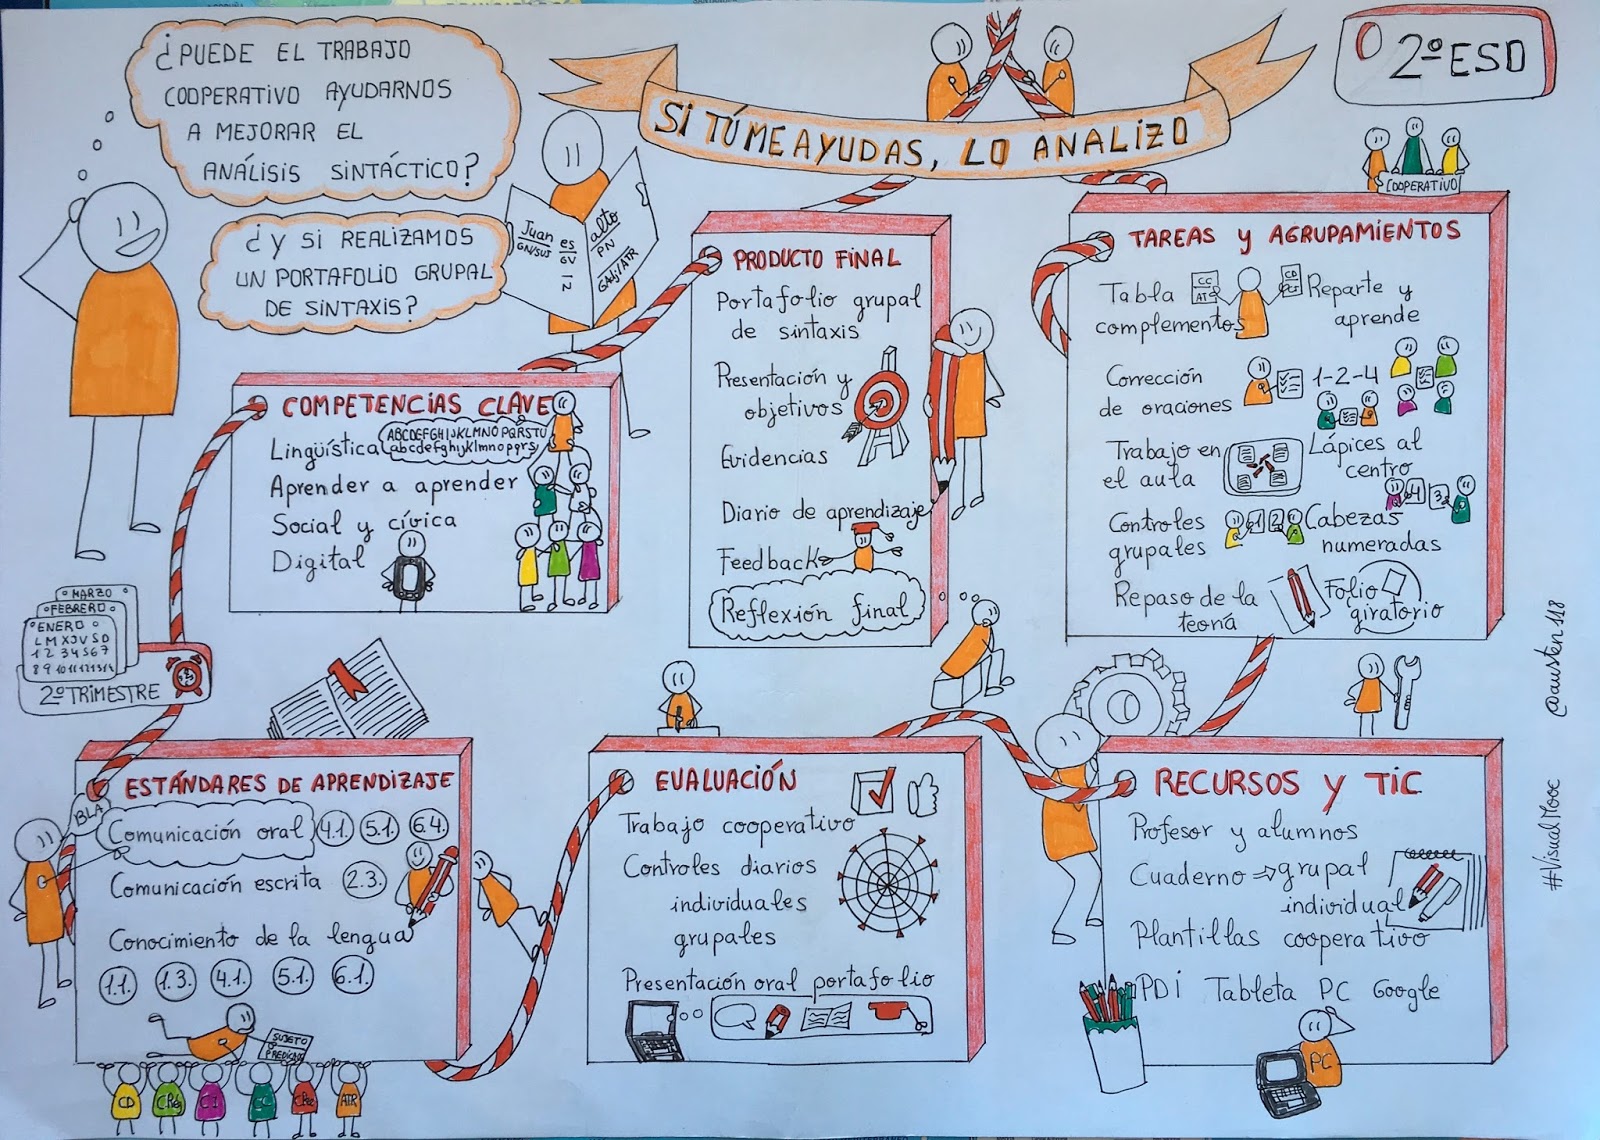 ¿PUEDE EL TRABAJO
COOPERATIVO AYUDARNOS
A MEJORAR EL
ANÁLISIS SINTÁCTICO?
¿Y SI REALIZAMOS
UN PORTAFOLIO GRUPAL
DE SINTAXIS?
Juan es alto
GN/SUJ GV PN
N GAdj/ATR
SI TÚ ME AYUDAS, LO ANALIZO
2º ESO
COOPERATIVO
COMPETENCIAS CLAVE
Lingüística
ABCDEFGHIJKLMNÑOPQRSTU
abcdefghijklmnopqrs
Aprender a aprender
Social y cívica
Digital
PRODUCTO FINAL
Portafolio grupal
de sintaxis
Presentación y
objetivos
Evidencias
Diario de aprendizaje
Feedback
Reflexión final
TAREAS Y AGRUPAMIENTOS
Tabla
complementos
CC
CD
Reparte y
aprende
Corrección
de oraciones
1-2-4
Trabajo en
el aula
Lápices al
centro
Controles
grupales
1 2
4 3
Cabezas
numeradas
Repaso de la
teoría
Folio
giratorio
MARZO
FEBRERO
ENERO
L M X J V S D
1 2 3 4 5 6 7
8 9 10 11 12 13 14
2º TRIMESTRE
ESTÁNDARES DE APRENDIZAJE
BLA
Comunicación oral 4.1. 5.1. 6.4.
Comunicación escrita 2.3.
Conocimiento de la lengua
1.1. 1.3. 4.1. 5.1. 6.1.
SUJETO
CD
CRég
CI
CC
ATR
EVALUACIÓN
Trabajo cooperativo
Controles diarios
individuales
grupales
Presentación oral portafolio
RECURSOS Y TIC
Profesor y alumnos
Cuaderno ⇒ grupal
individual
Plantillas cooperativo
PDI Tableta PC Google
PC
#VisualMooc @austen118